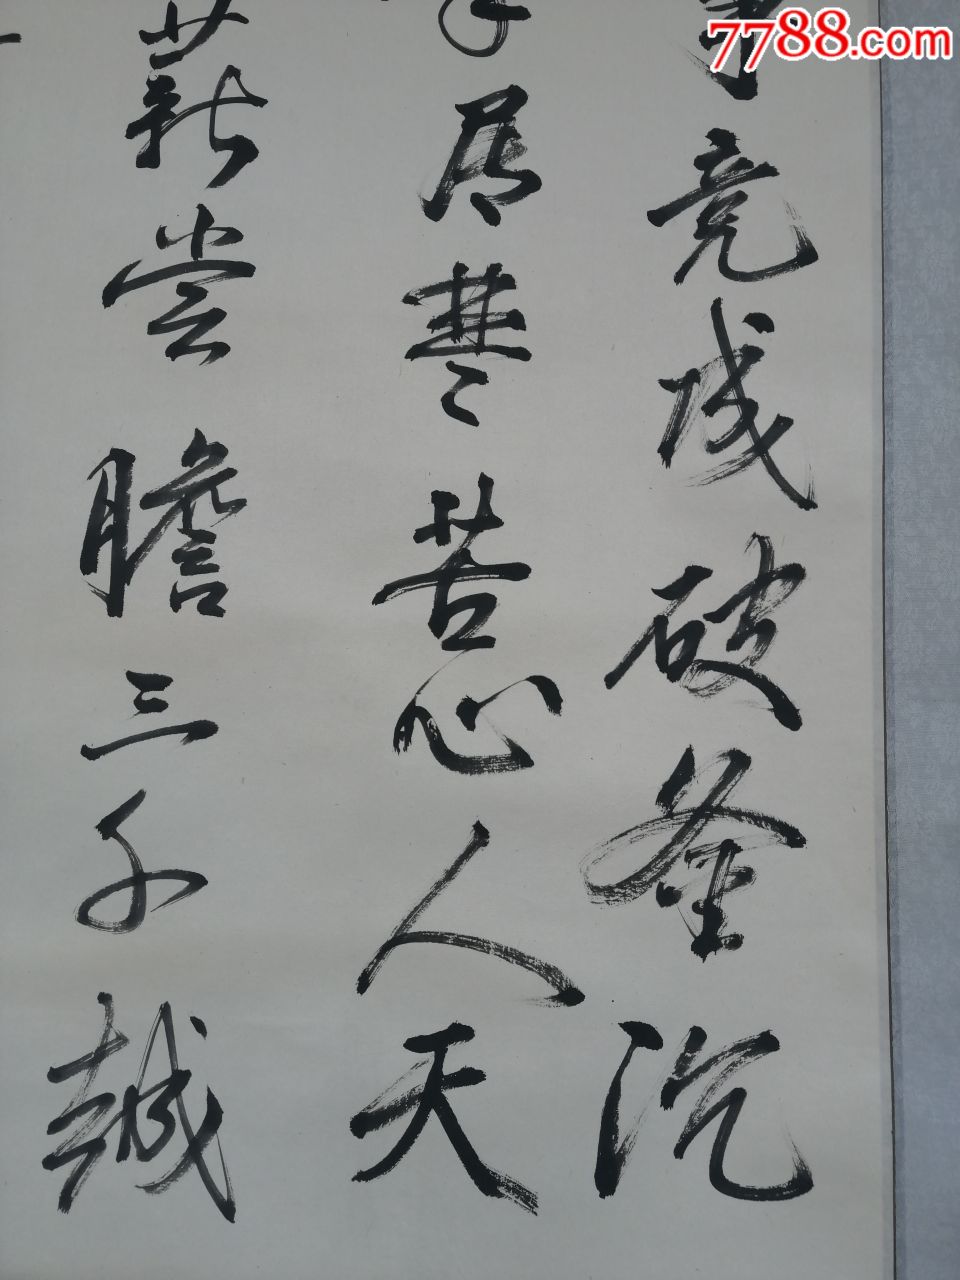 7788.com
事竟成破釜沉
属楚苦心人天
薪尝膽三千越